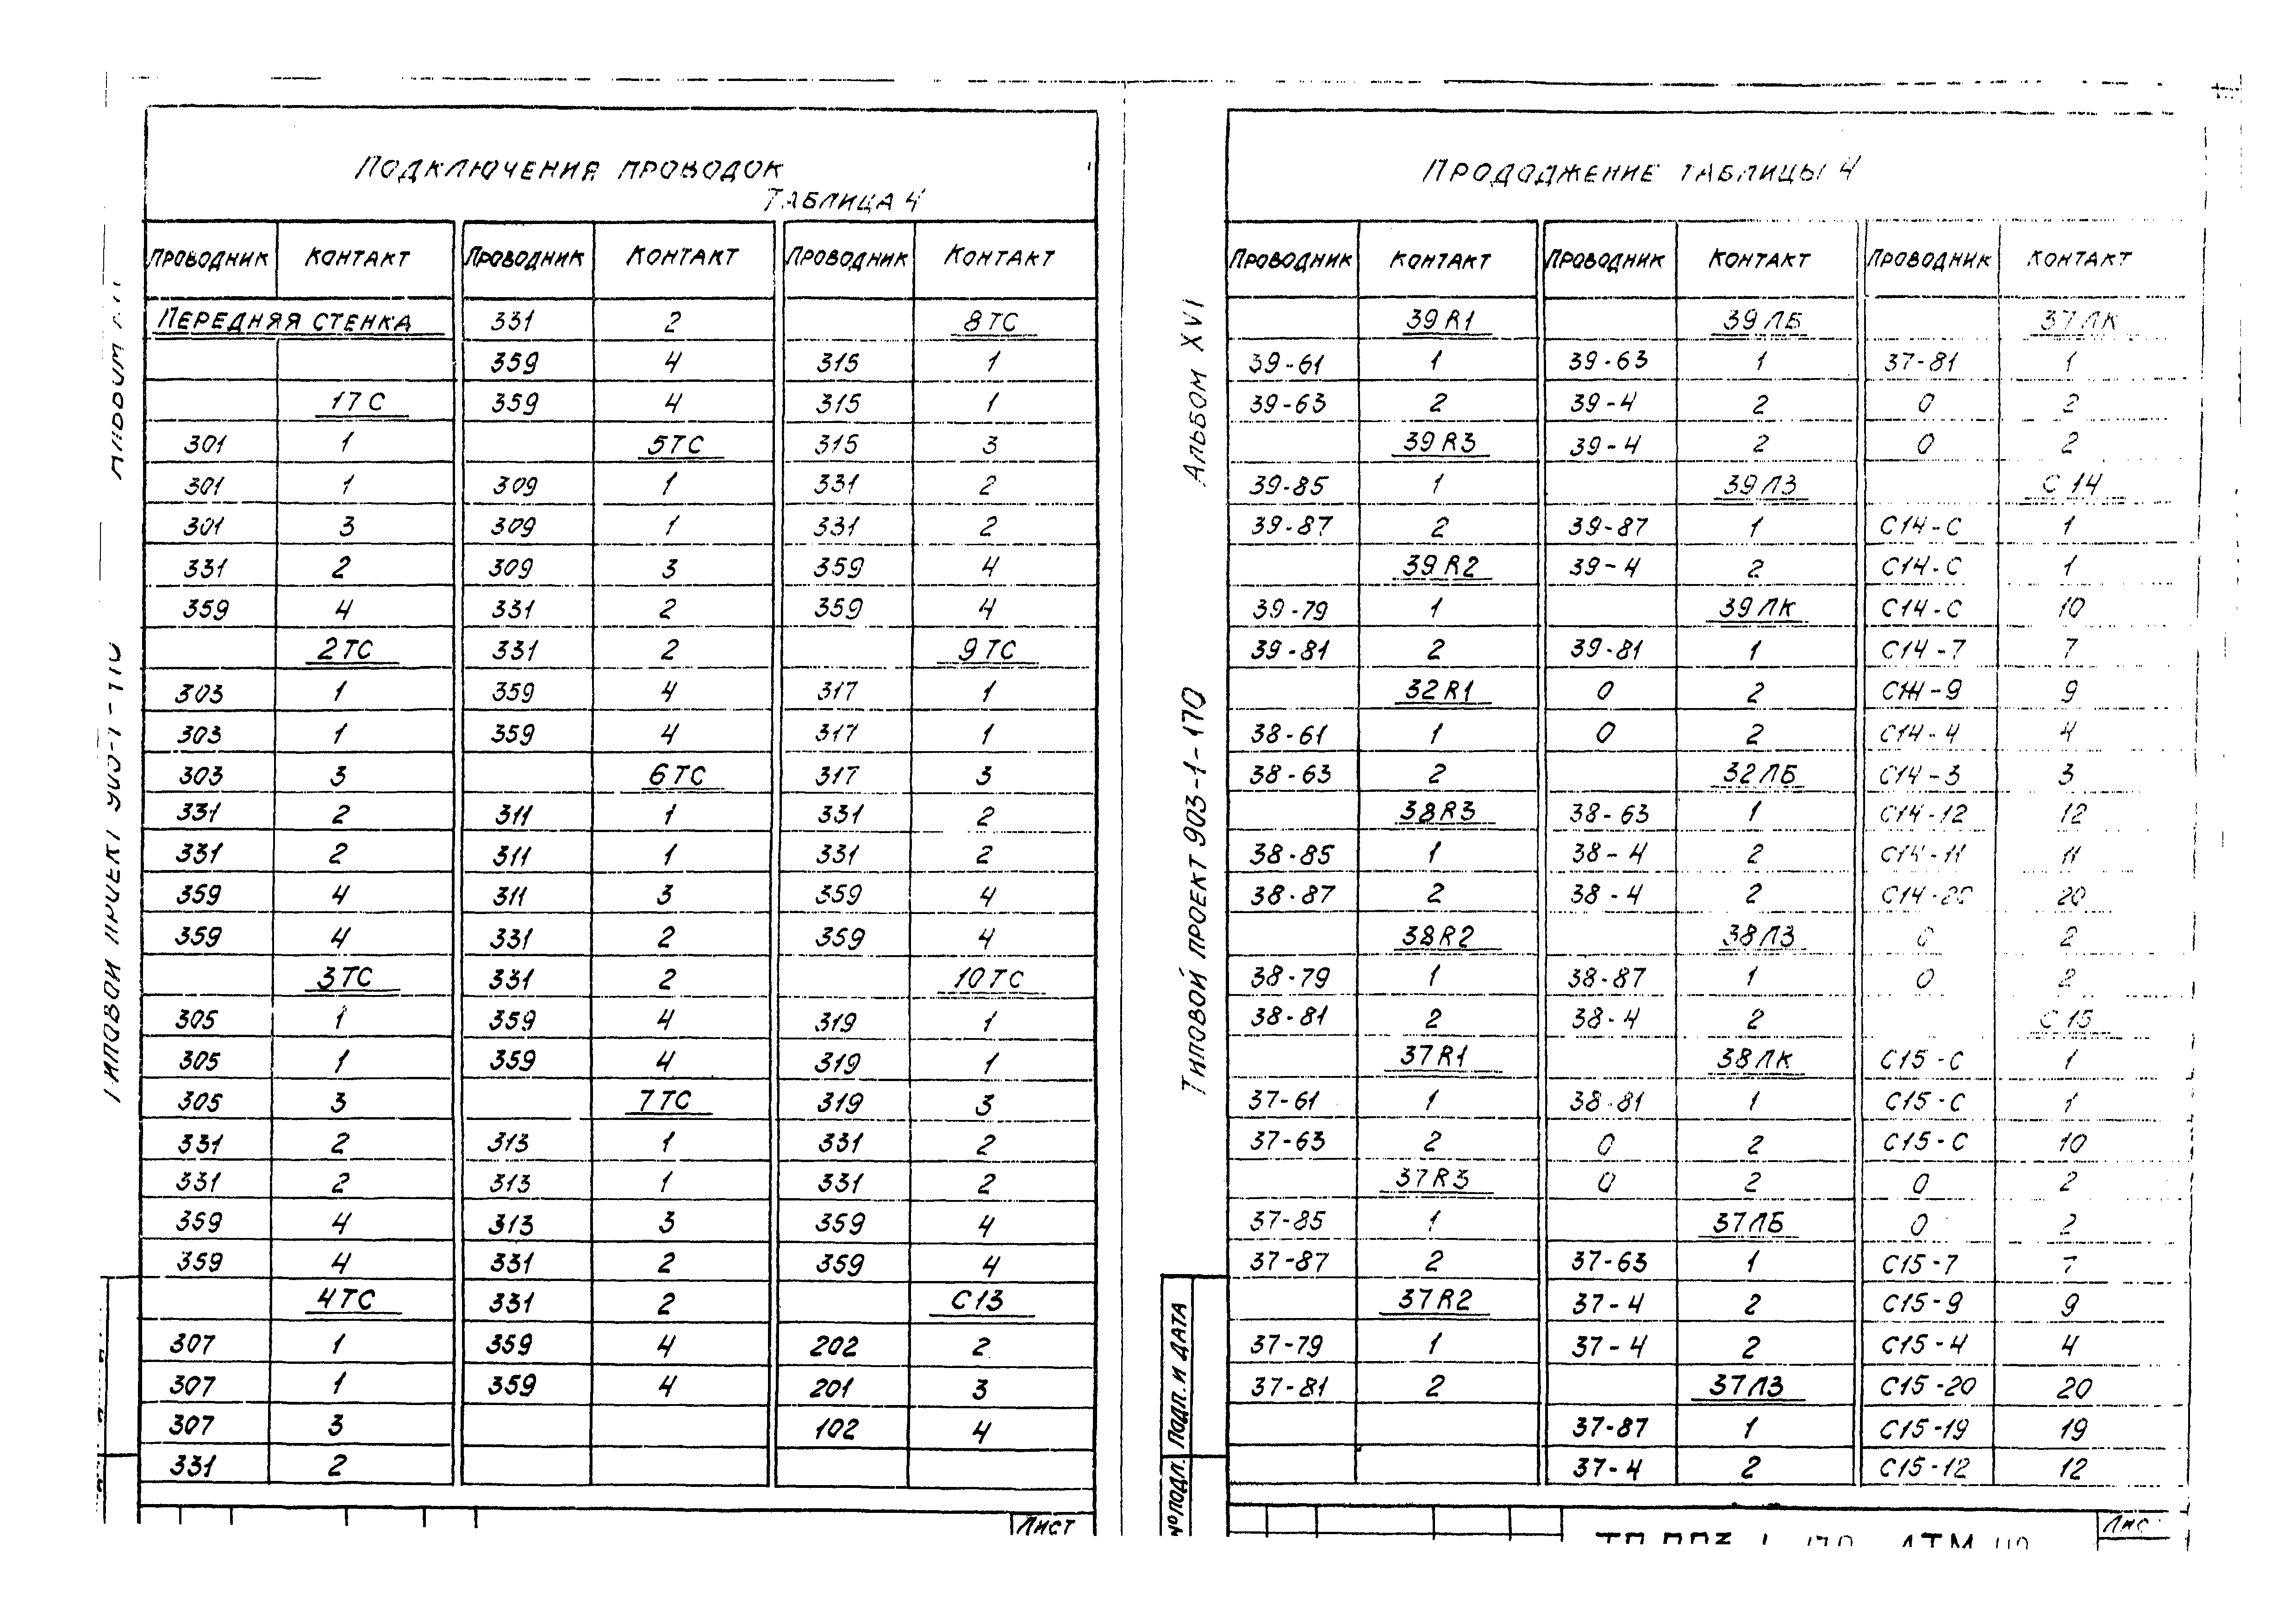 Подключения проводок
Таблица 4
Проводник Контакт Проводник Контакт Проводник Контакт
Передняя стенка 331 2 8ТС
359 4 315 1
17С 359 4 315 1
301 1 5ТС 315 3
301 1 309 1 331 2
301 3 309 1 331 2
331 2 309 3 359 4
359 4 331 2 359 4
2ТС 331 2 9ТС
303 1 359 4 317 1
303 1 359 4 317 1
303 3 6ТС 317 3
331 2 311 1 331 2
331 2 311 1 331 2
359 4 311 3 359 4
359 4 331 2 359 4
3ТС 331 2 10ТС
305 1 359 4 319 1
305 1 359 4 319 1
305 3 7ТС 319 3
331 2 313 1 331 2
331 2 313 1 331 2
359 4 313 3 359 4
359 4 331 2 359 4
4ТС 331 2 С13
307 1 359 4 202 2
307 1 359 4 201 3
307 3 102 4
331 2
Лист
Альбом XVI
Типовой проект 903-1-170
Подп. и дата
№подл.
Прододжение таблицы 4
Проводник Контакт Проводник Контакт Проводник Контакт
39R1 39ЛБ 37ЛК
39-61 1 39-63 1 37-81 1
39-63 2 39-4 2 0 2
39R3 39-4 2 0 2
39-85 1 39ЛЗ С14
39-87 2 39-87 1 С14-С 1
39R2 39-4 2 С14-С 1
39-79 1 39ЛК С14-С 10
39-81 2 39-81 1 С14-7 7
32R1 0 2 С14-9 9
38-61 1 0 2 С14-4 4
38-63 2 32ЛБ С14-3 3
38R3 38-63 1 С14-12 12
38-85 1 38-4 2 С14-11 11
38-87 2 38-4 2 С14-20 20
38R2 38ЛЗ 0 2
38-79 1 38-87 1 0 2
38-81 2 38-4 2 С15
37R1 38ЛК С15-С 1
37-61 1 38-81 1 С15-С 1
37-63 2 0 2 С15-С 10
37R3 0 2 0 2
37-85 1 37ЛБ 0 2
37-87 2 37-63 1 С15-7 7
37R2 37-4 2 С15-9 9
37-79 1 37-4 2 С15-4 4
37-81 2 37ЛЗ С15-20 20
37-87 1 С15-19 19
37-4 2 С15-12 12